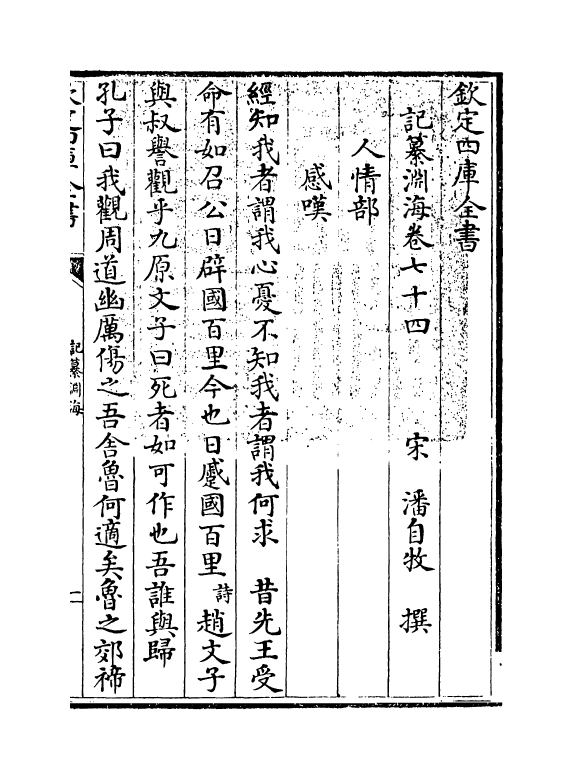 欽定四庫全書
記纂淵海卷七十四
宋 潘自牧 撰
人情部
感嘆
經知我者謂我心憂不知我者謂我何求 昔先王受
命有如召公日辟國百里今也日蹙國百里詩趙文子
與叔譽觀乎九原文子曰死者如可作也吾誰與歸
孔子曰我觀周道幽厲傷之吾舍魯何適矣魯之郊禘
欽定四庫全書
記纂淵海
一